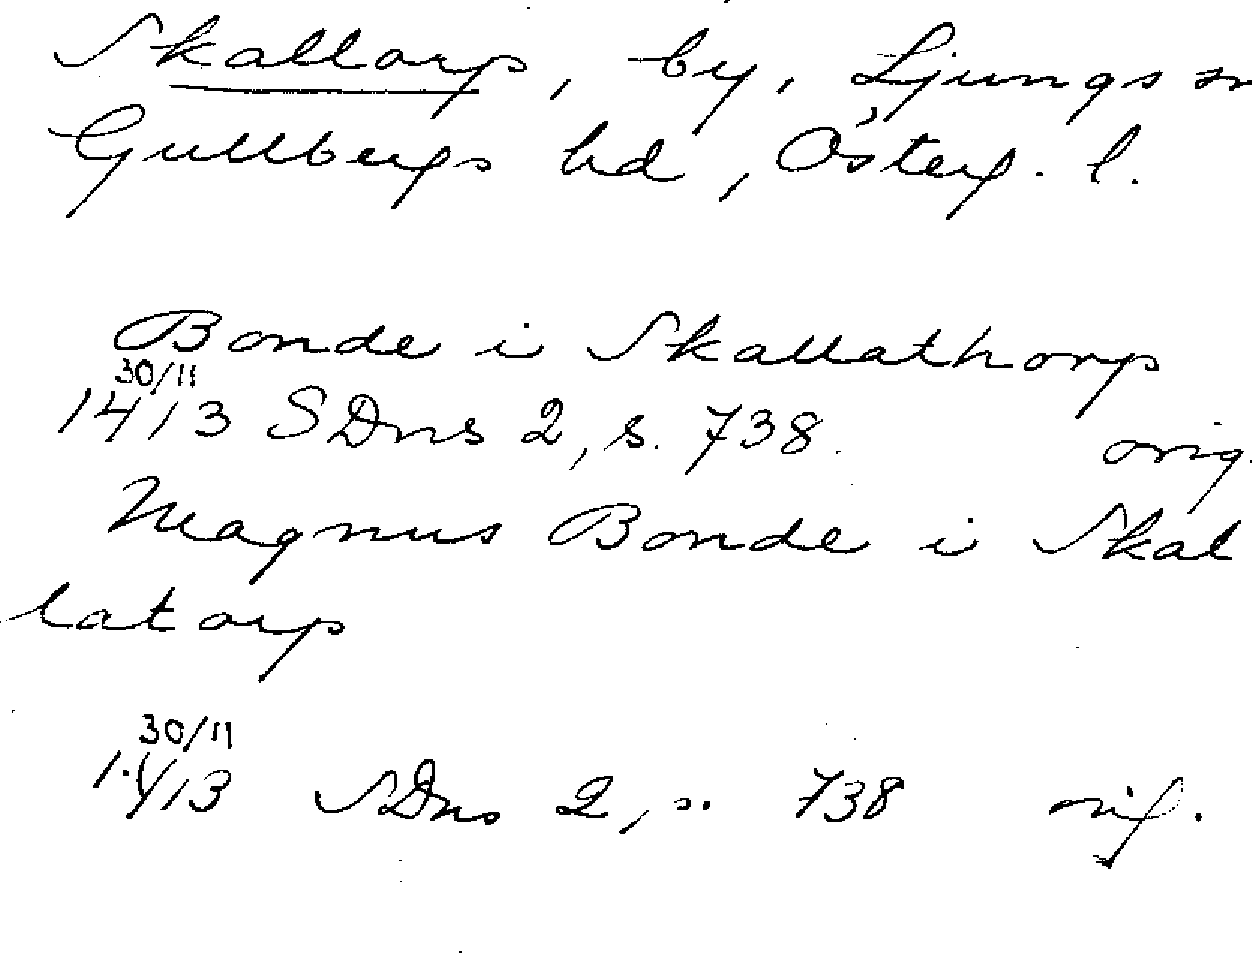 Skallorp, by, Ljungs sn
Gullbergs hd, Österg. l.
Bonde i Skallathorp
30/11
1413 SDns 2, s. 738. orig.
Magnus Bonde i Skal
latorp
30/11
1413 SDns 2, s. 738 orig.